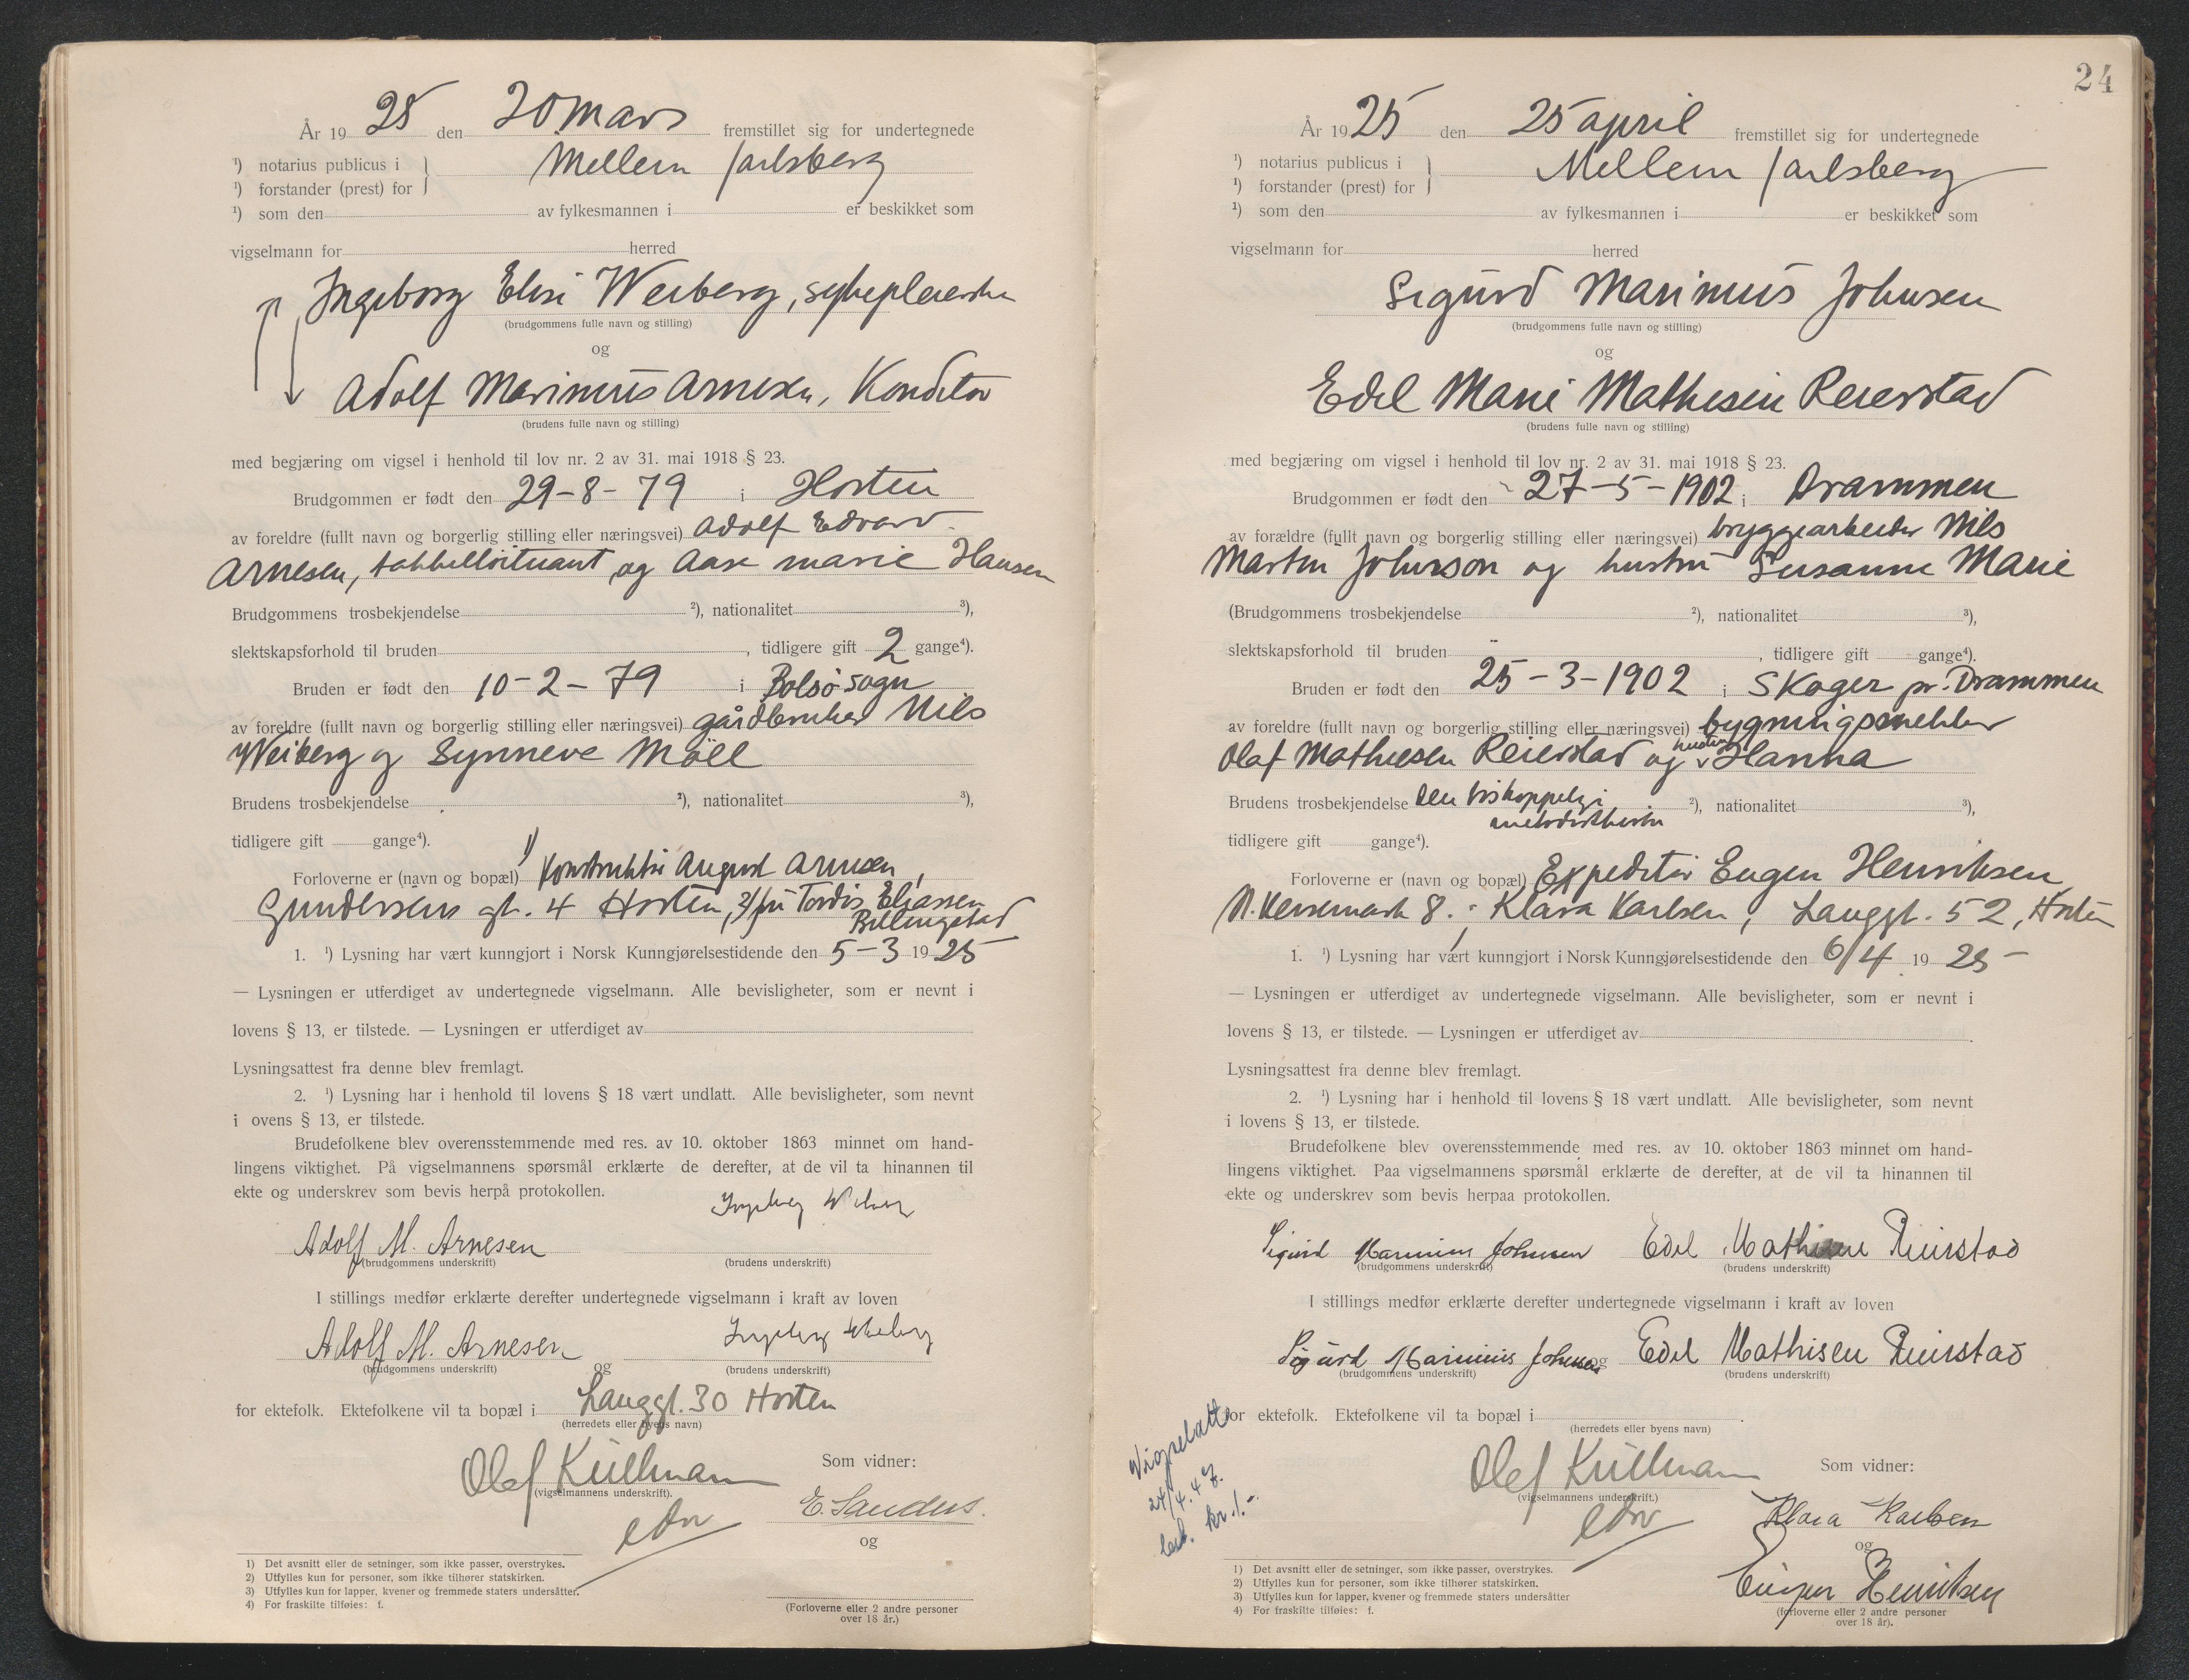 År 1925 den 20 mars fremstillet sig for undertegnede
¹) notarius publicus i } Mellem Jarlsberg
¹) forstander (prest) for
¹) som den av fylkesmannen i er beskikket som
vigselmann for herred
Ingeborg Elisi Weiberg, sykepleierske
(brudgommens fulle navn og stilling)
og
Adolf Marinius Arnesen, Konditor
(brudens fulle navn og stilling)
med begjæring om vigsel i henhold til lov nr. 2 av 31. mai 1918 § 23.
Brudgommen er født den 29-8-79 i Horten
av foreldre (fullt navn og borgerlig stilling eller næringsvei) Adolf Edvard
Arnesen, takkelløitnant og Aase Marie Hansen
Brudgommens trosbekjendelse ²), nationalitet ³),
slektskapsforhold til bruden , tidligere gift 2 gange⁴).
Bruden er født den 10-2-79 i Bolsø sogn
av foreldre (fullt navn og borgerlig stilling eller næringsvei) gårdbruker Nils
Weiberg og Synneve Moll
Brudens trosbekjendelse ²), nationalitet ³),
tidligere gift gange⁴).
Forloverne er (navn og bopæl) 1) Konstruktør August Arnesen,
Gundersens gt. 4 Horten, 2) fru Tordis Eliassen
Billingstad
1. ¹) Lysning har vært kunngjort i Norsk Kunngjørelsestidende den 5-3 1925
— Lysningen er utferdiget av undertegnede vigselmann. Alle bevisligheter, som er nevnt i
lovens § 13, er tilstede. — Lysningen er utferdiget av
Lysningsattest fra denne blev fremlagt.
2. ¹) Lysning har i henhold til lovens § 18 vært undlatt. Alle bevisligheter, som nevnt
i ovens § 13, er tilstede.
Brudefolkene blev overensstemmende med res. av 10. oktober 1863 minnet om hand-
lingens viktighet. På vigselmannens spørsmål erklærte de derefter, at de vil ta hinannen til
ekte og underskrev som bevis herpå protokollen.
Adolf M. Arnesen Ingeborg Weiberg
(brudgommens underskrift) (brudens underskrift)
I stillings medfør erklærte derefter undertegnede vigselmann i kraft av loven
Adolf M. Arnesen og Ingeborg Weiberg
(brudgommens underskrift) (brudens underskrift)
for ektefolk. Ektefolkene vil ta bopæl i Langgt. 30 Horten
(herredets eller byens navn)
Olef Küllmann Som vidner:
(vigselmannens underskrift).
edv E. Sanders.
og
1) Det avsnitt eller de setninger, som ikke passer, overstrykes.
2) Utfylles kun for personer, som ikke tilhører statskirken.
3) Utfylles kun for lapper, kvener og fremmede staters undersåtter.
4) For fraskilte tilføies: f.
(Forloverne eller 2 andre personer
over 18 år.)
24
År 1925 den 25 april fremstillet sig for undertegnede
¹) notarius publicus i } Mellem Jarlsberg
¹) forstander (prest) for
¹) som den av fylkesmannen i er beskikket som
vigselmann for herred
Sigurd Marinius Johnsen
(brudgommens fulle navn og stilling)
og
Edel Marie Mathisen Reierstad
(brudens fulle navn og stilling)
med begjæring om vigsel i henhold til lov nr. 2 av 31. mai 1918 § 23.
Brudgommen er født den 27-5-1902 i Drammen
av forældre (fullt navn og borgerlig stilling eller næringsvei) bryggearbeider Nils
Martin Johnson og hustru Susanne Marie
(Brudgommens trosbekjendelse ²), nationalitet ³),
slektskapsforhold til bruden , tidligere gift gange⁴).
Bruden er født den 25-3-1902 i Skoger pr. Drammen
av foreldre (fullt navn og borgerlig stilling eller næringsvei) bygningssnekker
Olaf Mathisen Reierstad og hustru Hanna
Brudens trosbekjendelse Den biskoppelige ²), nationalitet ³),
metodistkirke
tidligere gift gange⁴).
Forloverne er (navn og bopæl) Expeditør Eugen Henriksen
8.; Klara Karlsen, Langgt. 52, Horten
1. ¹) Lysning har vært kunngjort i Norsk Kunngjørelsestidende den 6/4 1925
— Lysningen er utferdiget av undertegnede vigselmann. Alle bevisligheter, som er nevnt i
lovens § 13, er tilstede. — Lysningen er utferdiget av
Lysningsattest fra denne blev fremlagt.
2. ¹) Lysning har i henhold til lovens § 18 vært undlatt. Alle bevisligheter, som nevnt
i lovens § 13, er tilstede.
Brudefolkene blev overensstemmende med res. av 10. oktober 1863 minnet om hand-
lingens viktighet. Paa vigselmannens spørsmål erklærte de derefter, at de vil ta hinannen til
ekte og underskrev som bevis herpaa protokollen.
Sigurd Marinius Johnsen Edel Mathisen Reierstad
(brudgommens underskrift) (brudens underskrift)
I stillings medfør erklærte derefter undertegnede vigselmann i kraft av loven
Sigurd Marinius Johnsen og Edel Mathisen Reierstad
(brudgommens underskrift) (brudens underskrift)
for ektefolk. Ektefolkene vil ta bopæl i .
(herredets eller byens navn)
Vigselatt.
24/4.47.
bet. kr. 1.-
Olef Küllmann Som vidner:
(vigselmannens underskrift.)
edv Klara Karlsen
og
Eugen Henriksen
1) Det avsnitt eller de setninger, som ikke passer, overstrykes.
2) Utfylles kun for personer, som ikke tilhører statskirken.
3) Utfylles kun for lapper, kvener og fremmede staters undersåtter
4) For fraskilte tilføies: f.
(forloverne eller 2 andre personer
over 18 år).